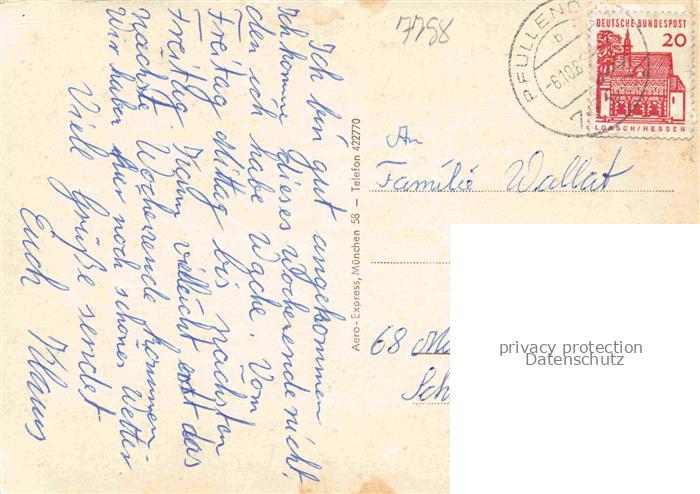 Ich bin gut angekommen
Ich komme dieses Wochenende nicht,
den ich habe Wache. Vom
Freitag Mittag bis nächsten
Freitag. Kann vielleicht erst das
nächste Wochenende kommen.
Wir haben hier noch schönes Wetter
Viele Grüße sendet
Euch Klaus
Aero-Express, München 58 — Telefon 422770
7798
PFULLEND
b
DEUTSCHE BUNDESPOST
20
LORSCH/HESSEN
An
Familie Wallat
68
Sch
privacy protection
Datenschutz